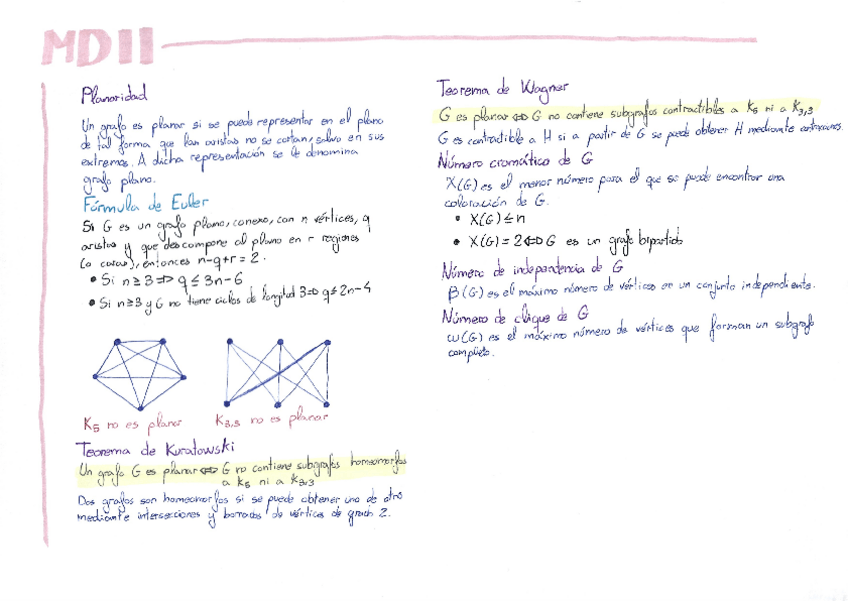 MDII
Planaridad
Un grafo es planar si se puede representar en el plano
de tal forma que las aristas no se cortan, salvo en sus
extremos. A dicha representación se le denomina
grafo plano.
Fórmula de Euler
Si G es un grafo plano, conexo, con n vértices, q
aristas y que descompone al plano en r regiones
(o caras), entonces n-q+r=2.
• Si n≥3 ⇒ q ≤ 3n-6
• Si n≥3 y G no tiene ciclos de longitud 3 ⇒ q ≤ 2n-4
K5 no es planar
K3,3 no es planar
Teorema de Kuratowski
Un grafo G es planar ⇔ G no contiene subgrafos homeomorfos
a K5 ni a K3,3
Dos grafos son homeomorfos si se puede obtener uno de otro
mediante intersecciones y borrados de vértices de grado 2.
Teorema de Wagner
G es planar ⇔ G no contiene subgrafos contractibles a K5 ni a K3,3
G es contractible a H si a partir de G se puede obtener H mediante contracciones.
Número cromático de G
X(G) es el menor número para el que se puede encontrar una
coloración de G.
• X(G) ≤ n
• X(G) = 2 ⇔ G es un grafo bipartido
Número de independencia de G
β(G) es el máximo número de vértices en un conjunto independiente.
Número de clique de G
ω(G) es el máximo número de vértices que forman un subgrafo
completo.